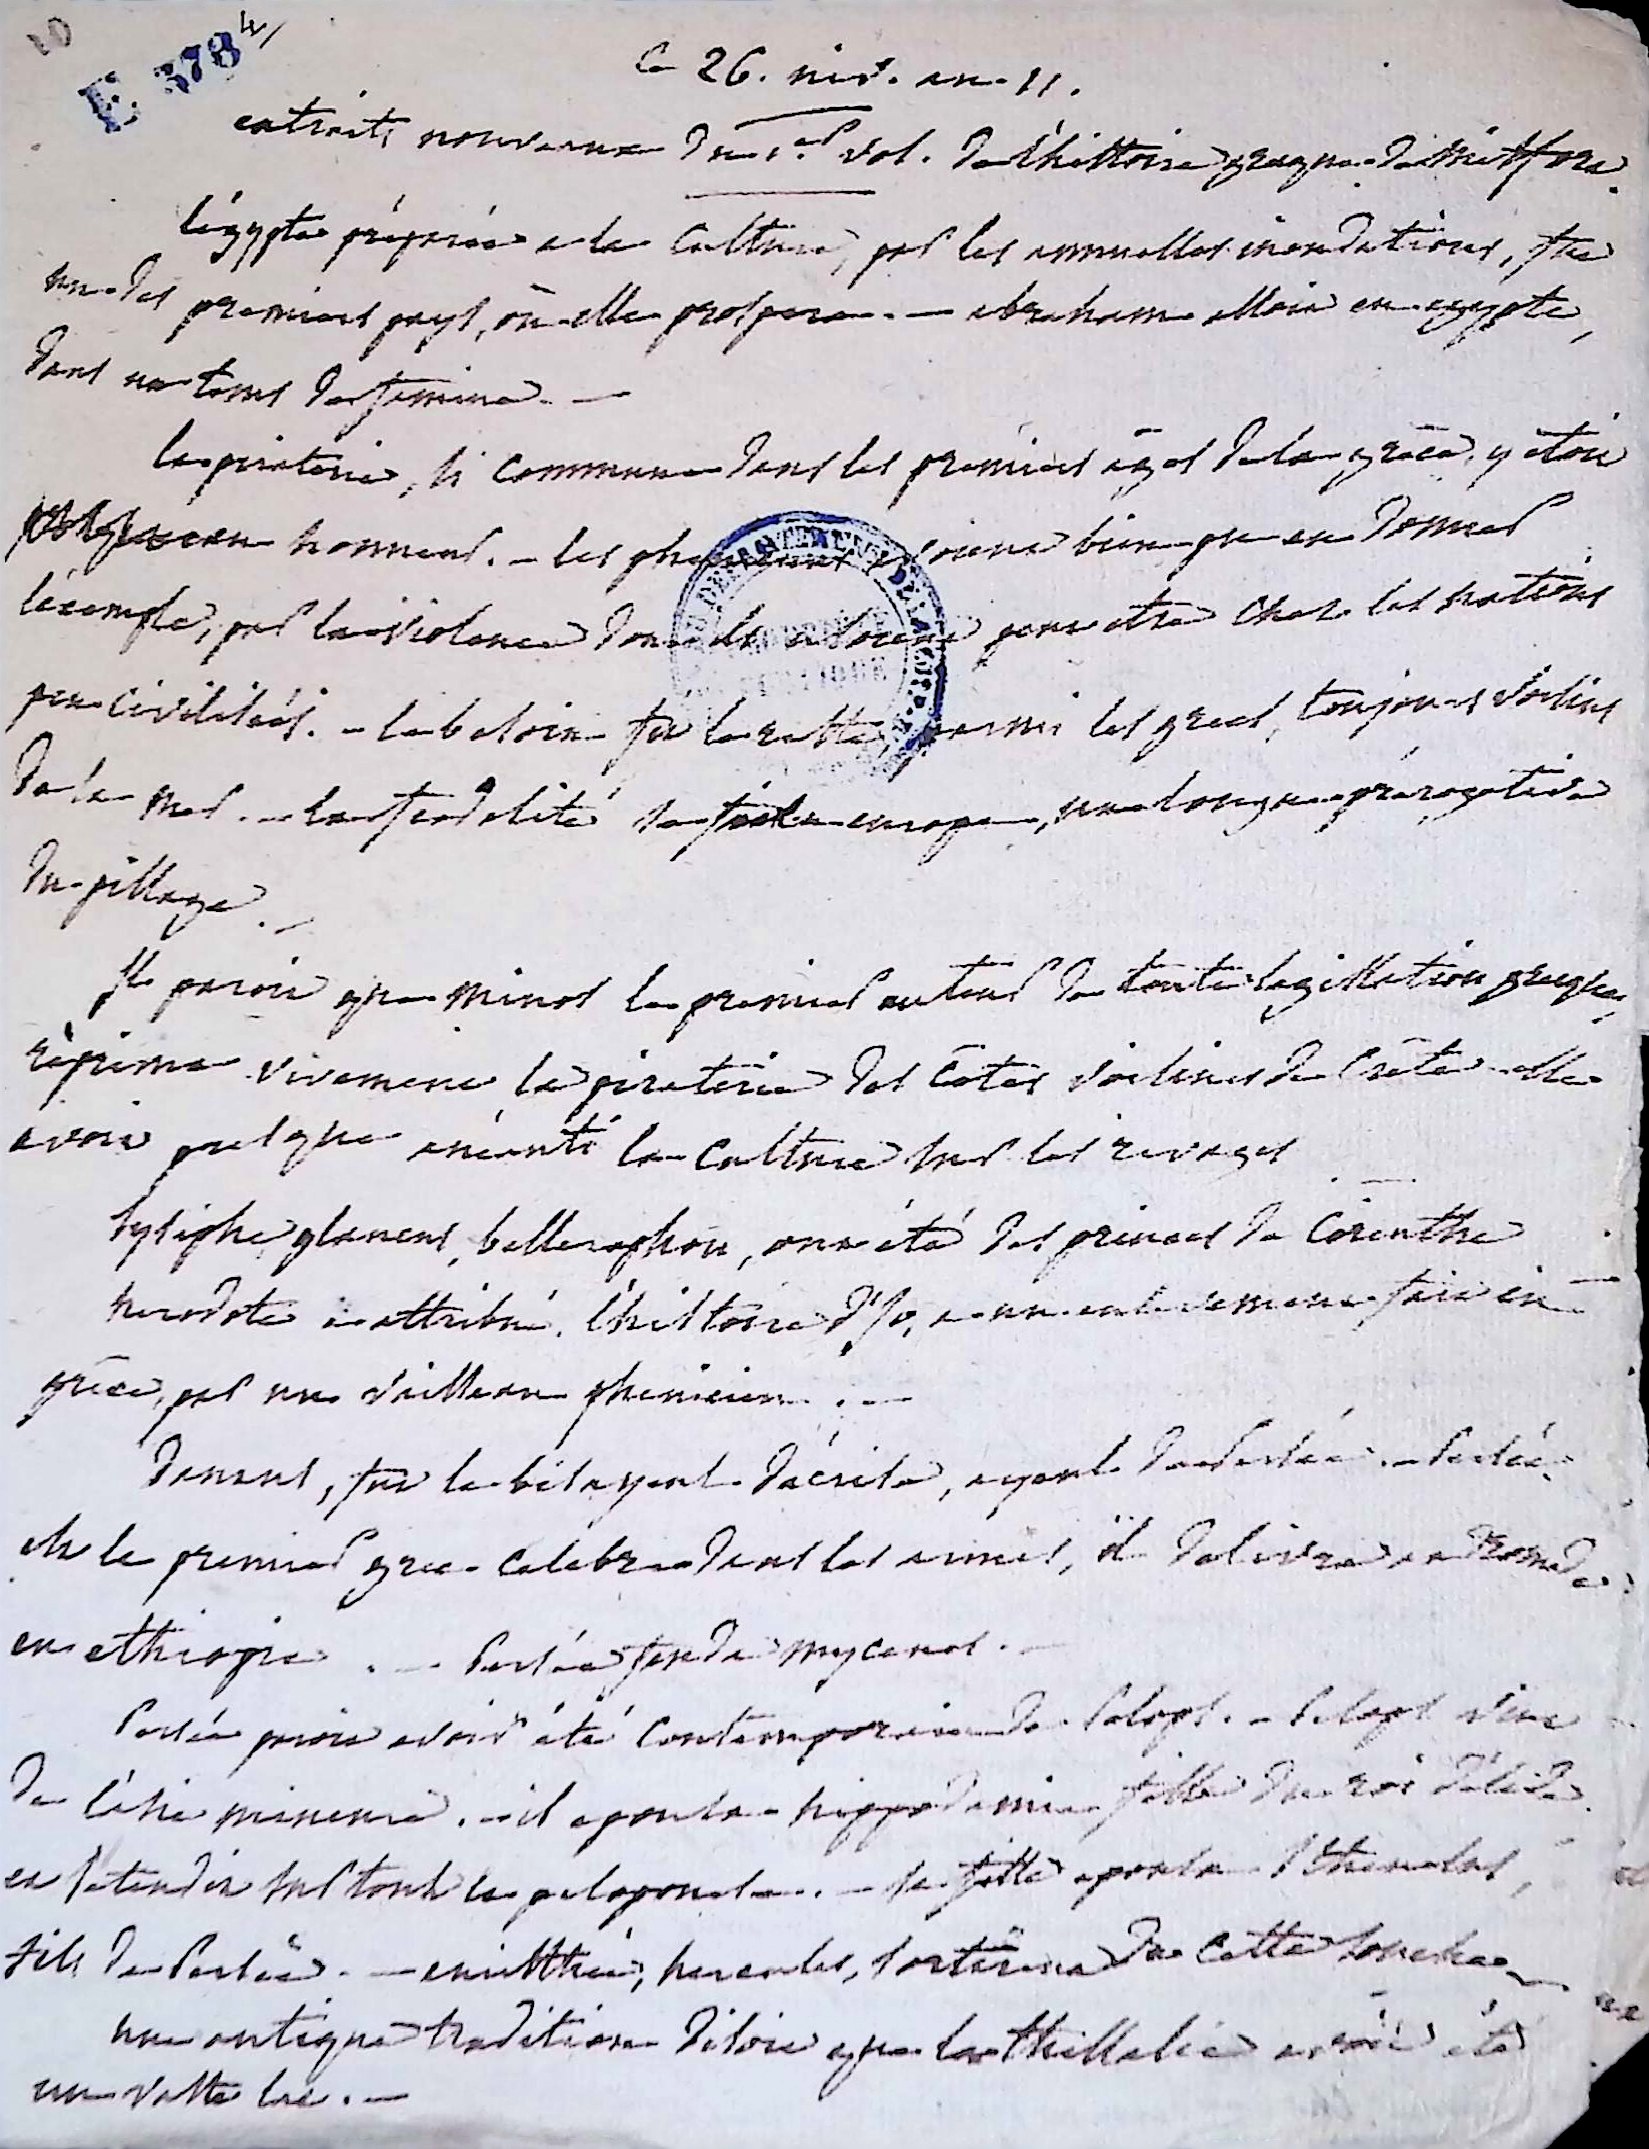 10
E 378 4/
Le 26. niv. an. 11.
extraits nouveaux du 1.er vol. de l'histoire grecque de Mitford.
l'égypte préparée a la culture, par les annuelles inondations, fut
un des premiers pays, où elle prospera. — abraham alloit en egypte,
dans un tems de famine. —
la piraterie, si commune dans les premiers âges de la grèce, y étoit
en honneur. — les pheniciens bien pu en donner
l'exemple, par la violence dont ils usoient peut etre chez les nations
peu civilisées. — le besoin fit le reste, parmi les grecs, toujours voisins
de la mer. — la feodalité en europe, une longue prérogative
du pillage. —
Il paroit que minos le premier auteur de toute legislation grecque,
réprima vivement la piraterie des côtes voisines de Crète elle
avoit presque anéanti la culture sur les rivages
. —
sysiphe, glaucus, bellerophon, ont été des princes de Corinthe
herodote a attribué l'histoire d'Io, a un enlevement fait en
grèce, par un vaisseau phenicien. —
Danaus, fut le bisayeul d'acrise, ayeul de Persée. — Persée
est le premier grec celebre dans les armes, il delivra andromede
en ethiopie. — Persée fonda mycenes. —
Persée paroit avoir été contemporain de Pelops. — Pelops vint
de l'asie mineure. — il epousa hippodamie fille du roi d'élide
et s'etendit sur tout le peloponese. — sa fille epousa Sthenelus,
fils de Persée. — euristhée, hercules, sortirent de cette souche —
une antique tradition disoit que la thessalie avoit été
un vaste lac. —